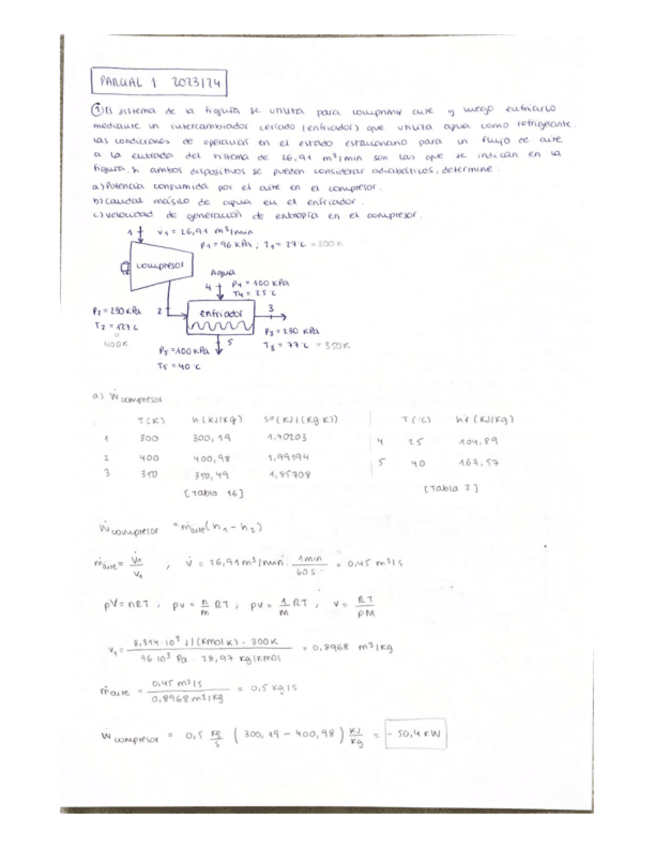 PARCIAL 1 2023/24
① El sistema de la figura se utiliza para comprimir aire y luego enfriarlo
mediante un intercambiador cerrado (enfriador) que utiliza agua como refrigerante.
Las condiciones de operación en el estado estacionario para un flujo de aire
a la entrada del sistema de 26,91 m³/min son las que se indican en la
figura. Si ambos dispositivos se pueden considerar adiabáticos, determine:
a) Potencia consumida por el aire en el compresor.
b) Caudal másico de agua en el enfriador.
c) Velocidad de generación de entropía en el compresor.
1 V₁ = 26,91 m³/min
P₁ = 96 kPa ; T₁ = 27°C = 300K
compresor
Agua
4 P₄ = 100 kPa
T₄ = 25°C
P₂ = 230 kPa 2 enfriador 3
T₂ = 127°C
400K
P₃ = 230 kPa
T₃ = 77°C = 350K
P₅ = 100 kPa 5
T₅ = 40°C
a) Ẇ compresor
T(K) h(kJ/kg) s°(kJ/(kg K)) T(°C) hf (kJ/kg)
1 300 300,19 1,70203 4 25 104,89
2 400 400,98 1,99194 5 40 167,57
3 350 350,49 1,85708
[Tabla 16] [Tabla 2]
Ẇ compresor = ṁaire (h₁ - h₂)
ṁaire = V̇₁/v₁ , V̇ = 26,91 m³/min · 1min/60s = 0,45 m³/s
pV = nRT ; pv = n/m RT ; pv = 1/M RT ; v = RT/pM
v₁ = 8,314·10³ J/(kmol K) · 300K / 96·10³ Pa 28,97 kg/kmol = 0,8968 m³/kg
ṁaire = 0,45 m³/s / 0,8968 m³/kg = 0,5 kg/s
Ẇ compresor = 0,5 kg/s (300,19 - 400,98) kJ/kg = -50,4 kW